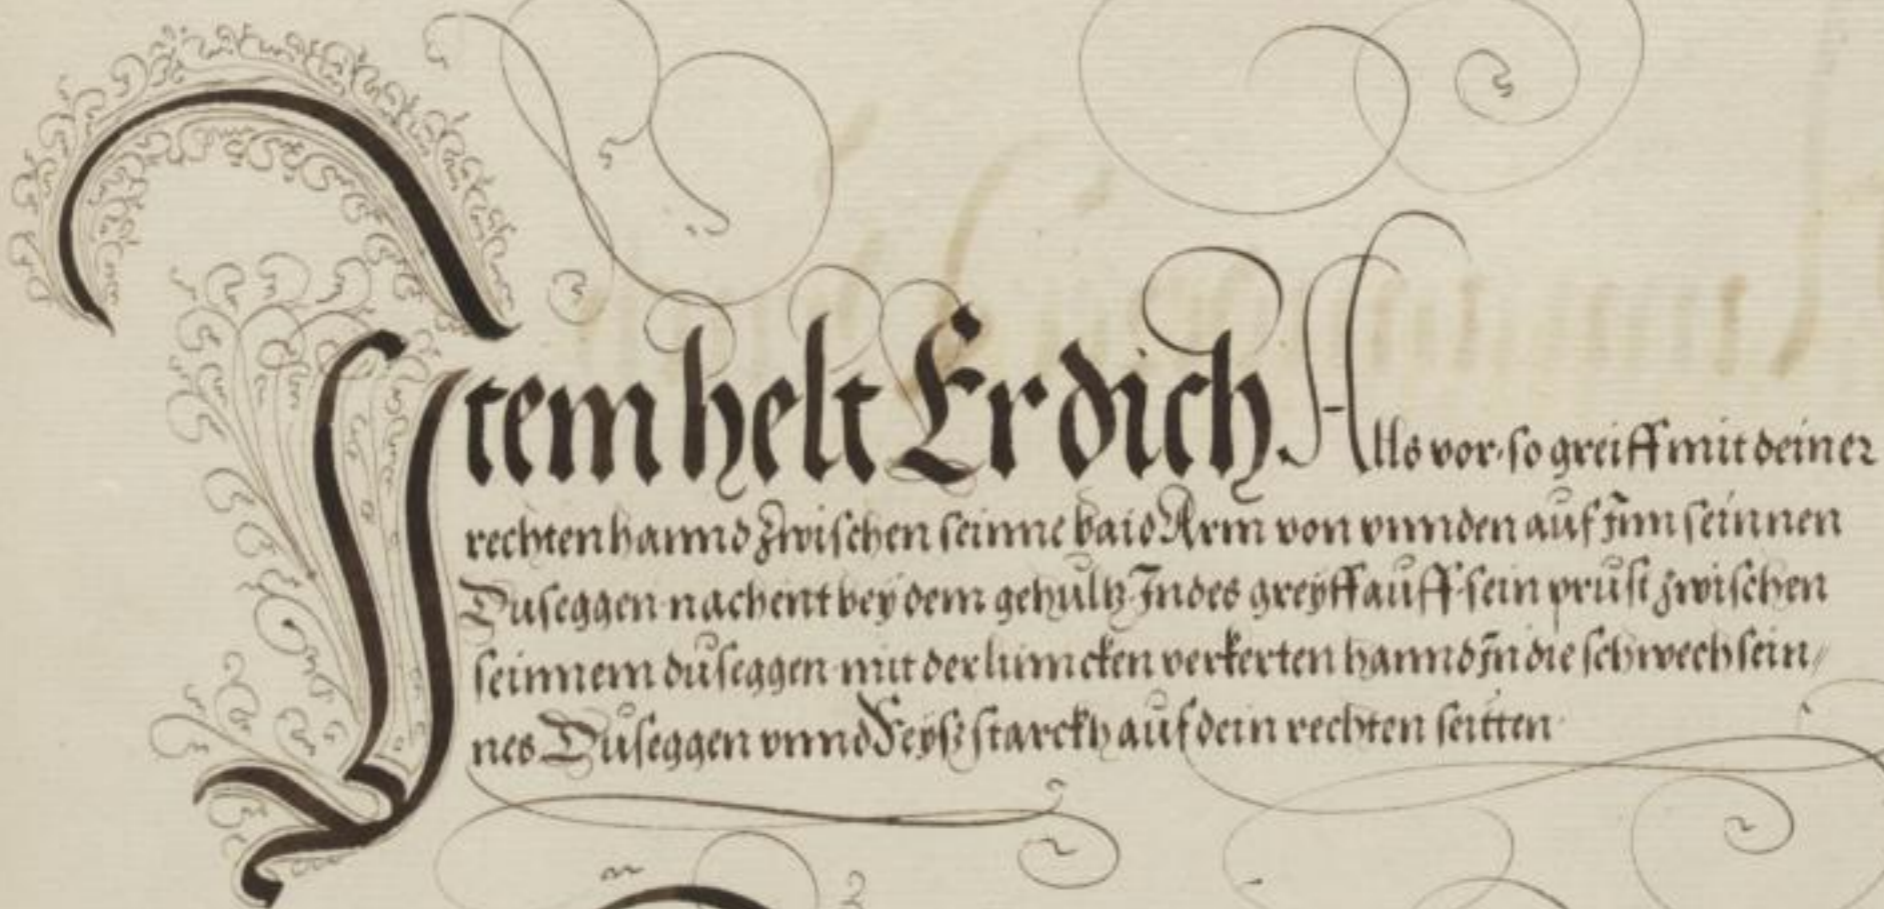 Item helt Er dich Alls vor. so greiff mit deiner
rechten hannd zwischen seinne baid Arm von vnnden auf jnn seinnen
Duseggen nachent bey dem gehültz Indes greyff auff sein prüst zwischen
seinnem düseggen mit der linncken verkerten hannd jn die schwech sein//
nes Düseggen vnnd Reyß starckh auf dein rechten seitten